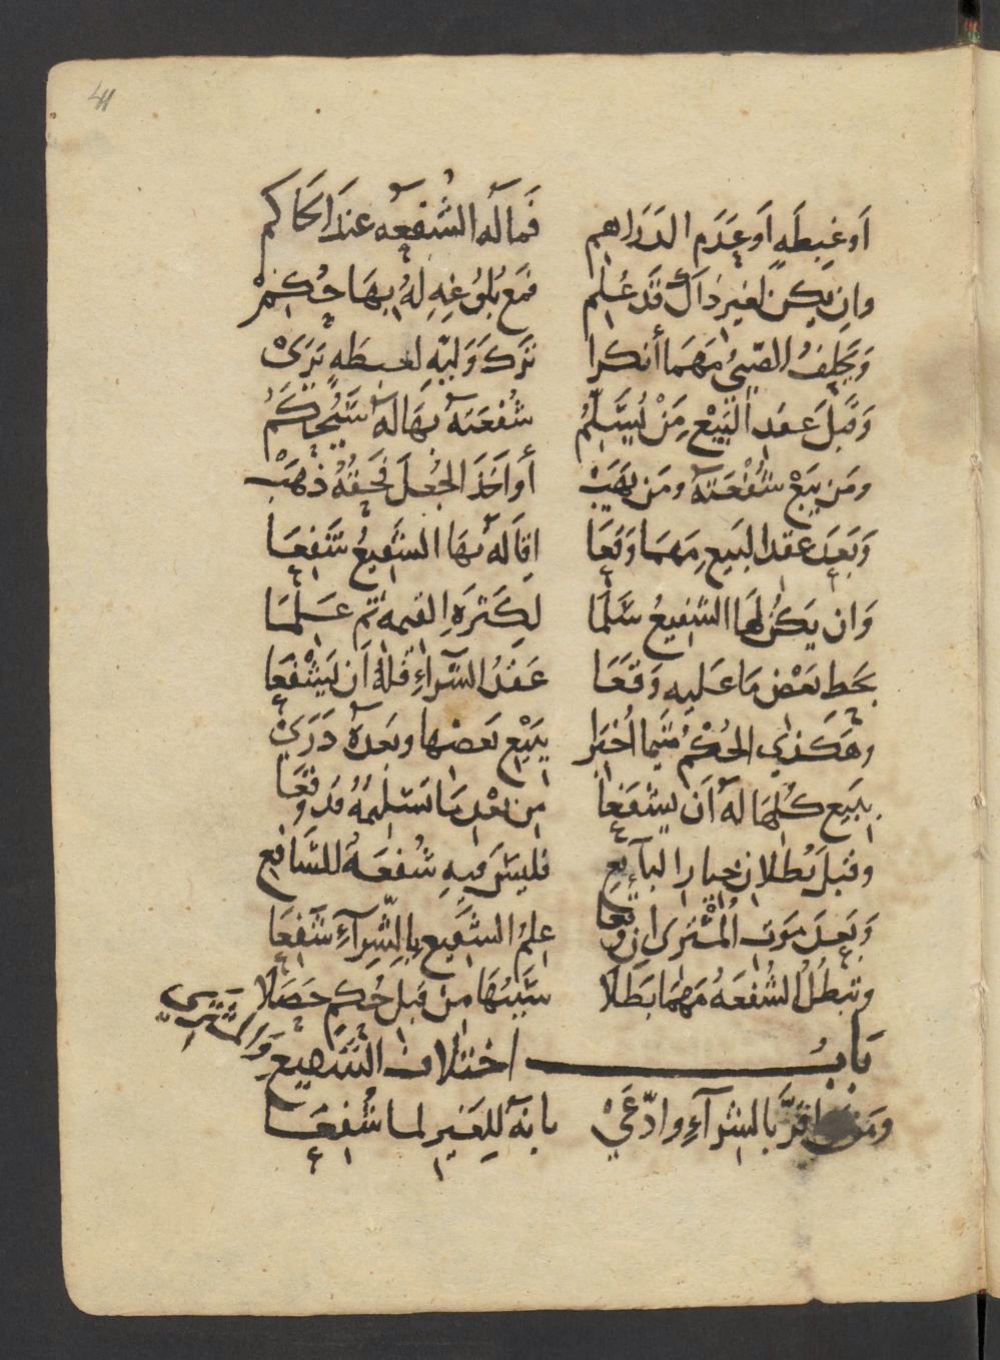 41
اَو غِبطَهٍ اَو عَدَم الدَرَاهم فَمالَه الشُفعه عندَ الحَاكم
وان يكن لغير ذاك قَد عُلم فمَع بُلُوغِهِ لهُ بهَا حُكِمْ
وَيحلِفُ الصّبىُ مَهمَا أنكرا تَركَ وَليّهِ لغبطَهٍ يَرَىْ
وَقَبلَ عقدِ البَيْعِ مَنْ يُسَلِّمُ شُفعَته بهَا لَه سَيُحْكَمُ
ومَن يَبعْ شُفْعَتَه ومَن يَهَبْ أو اخَذَ الجُعلَ فحَقُّهُ ذهَبْ
وَبَعدَ عقد البَيعِ مَهمَا وَقعَا اِقَالَه بهَا الشَفيعُ شَفعَا
وَان يَكُن لهَا الشفيعُ سَلّمَا لِكَثرَةِ القيمه ثم عَلمَا
بحَط بَعْض مَا عَليه وَقعَا عَقدُ الشّرآءِ فلهُ اَن يَشْفعَا
وهَكذي الحُكمُ مَتيما اُخبِرا بِبَيْعِ بَعضها وبَعدَه دَرَىْ
بِبَيعِ كُلّهَا لَه اَن يشفعَا مِن بَعْدِ مَا تَسْلِيمُهُ قد وقعَا
وقبلَ بُطلان خيار البآيعِ فليسَ فيهِ شُفعَةٌ للشَافعِ
وَبَعدَ مَوت المُشْتَرى اِن وقعَا عِلمُ الشَفيع بِالشِّرآءِ شَفعَا
وتبطُلُ الشُفعَهُ مَهمَا بَطَلا سَبَبُهَا مِن قَبلِ حُكمٍ حَصَلَا
بَابُ اختلاف الشَفيعِ وَالمشتَري
ومَن اقَرَّ بالشرآءِ وادّعَىْ بانهُ لِلغَير لما شُفِعَا